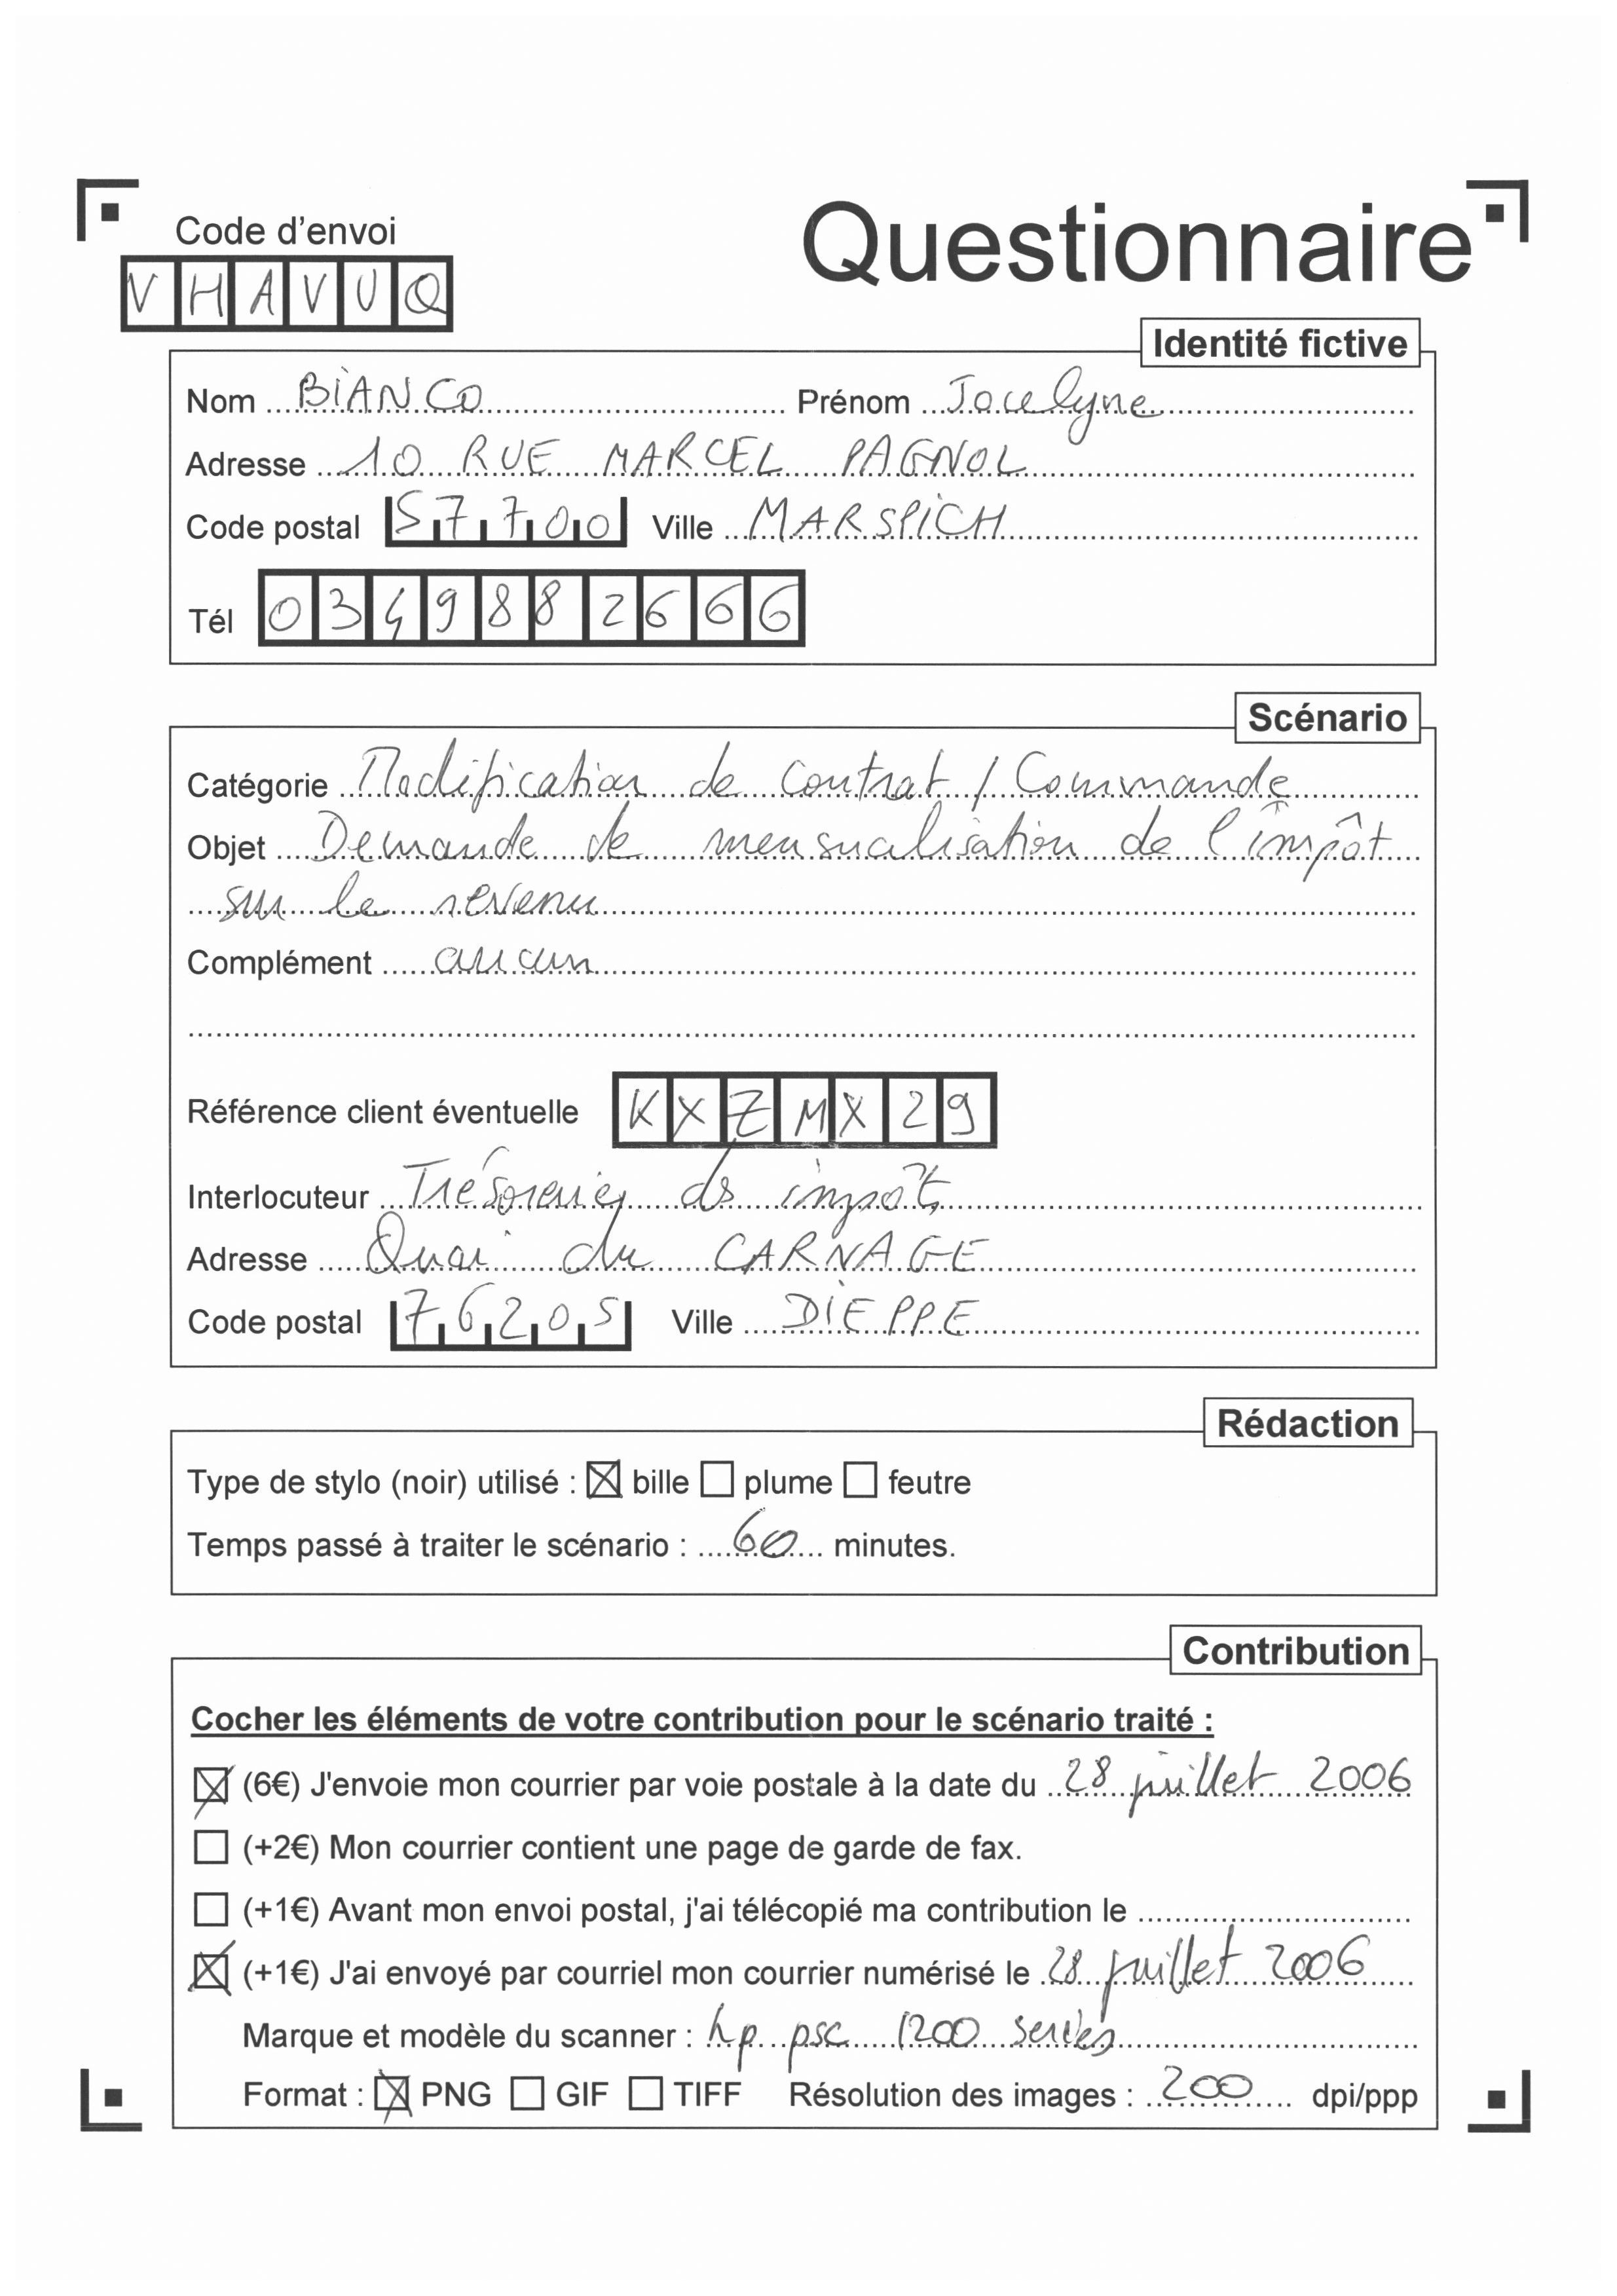 Code d'envoi
Questionnaire
VHAVUQ
Identité fictive
Nom BIANCO Prénom Jocelyne
Adresse 10 RUE MARCEL PAGNOL
Code postal 57700 Ville MARSPICH
Tél 0349882666
Scénario
Catégorie Modification de contrat / Commande
Objet Demande de mensualisation de l'impôt
sur le revenu
Complément aucun
Référence client éventuelle KXZMX29
Interlocuteur Trésorerie des impôts
Adresse Quai du CARNAGE
Code postal 76205 Ville DIEPPE
Rédaction
Type de stylo (noir) utilisé : ☒ bille ☐ plume ☐ feutre
Temps passé à traiter le scénario : 60 minutes.
Contribution
Cocher les éléments de votre contribution pour le scénario traité :
☒ (6€) J'envoie mon courrier par voie postale à la date du 28 juillet 2006
☐ (+2€) Mon courrier contient une page de garde de fax.
☐ (+1€) Avant mon envoi postal, j'ai télécopié ma contribution le
☒ (+1€) J'ai envoyé par courriel mon courrier numérisé le 28 juillet 2006
Marque et modèle du scanner : hp psc 1200 series
Format : ☒ PNG ☐ GIF ☐ TIFF Résolution des images : 200 dpi/ppp